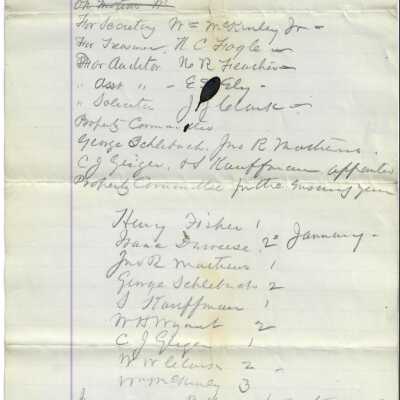 On motion
For Secretary Wm McKinley Jr -
For Treasurer, H C Fogle -
For Auditor, N R
" Asst " - E Ely -
" Solicitor J J Clark -
Property Committee
George Schlebach, Jno R Mathews.
C J Geiger, & S Kauffman appointed
Property Committee for the Ensuing year
Henry Fisher 1
Isaac 2 January -
Jno R Mathews 1
George Schlebach 2
S Kauffman 1
W H Wynant 2
C J Geiger 1
W W Clark 2 -
Wm McKinley 3